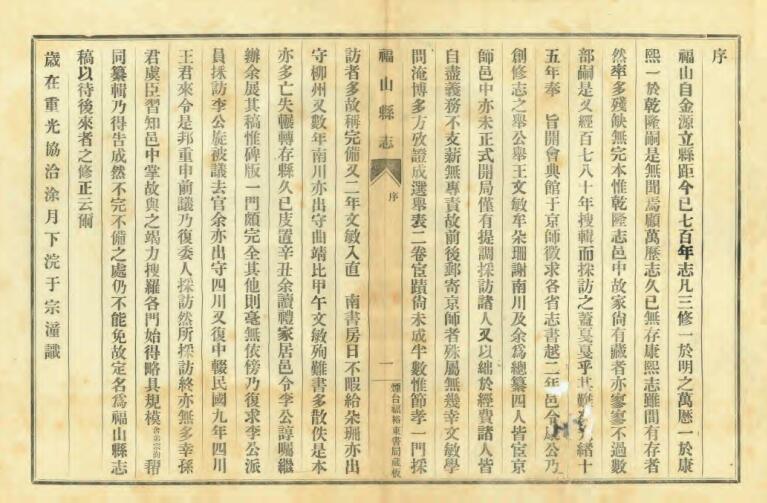 序
福山自金源立縣距今已七百年志凡三修一於明之萬厯一於康
熙一於乾隆嗣是無聞焉顧萬厯志久已無存康熙志雖間有存者
然率多殘缺無完本惟乾隆志邑中故家尙有藏者亦寥寥不過數
部嗣是又經百七八十年搜輯而採訪之蓋戛戛乎其難光緒十
五年奉 旨開會典館于京師徵求各省志書越二年邑令康公乃
創修志之舉公舉王文敏牟朵珊謝南川及余爲總纂四人皆宦京
師邑中亦未正式開局僅有提調採訪諸人又以絀於經費諸人皆
自盡義務不支薪無專責故前後郵寄京師者殊屬無幾幸文敏學
問淹博多方攷證成選舉表二卷宦蹟尙未成半數惟節孝一門採
福山縣志
序
一
煙台福裕東書局藏板
訪者多故稱完備又二年文敏入直 南書房日不暇給朵珊亦出
守柳州又數年南川亦出守曲靖比甲午文敏殉難書多散佚是本
亦多亡失輾轉存縣久已庋置辛丑余讀禮家居邑令李公諄囑繼
辦余展其稿惟碑版一門頗完全其他則毫無依傍乃復求李公派
員採訪李公旋被議去官余亦出守四川又復中輟民國九年四川
王君來令是邦重申前議乃復委人採訪然所採訪終亦無多幸孫
君虞臣習知邑中掌故與之竭力搜羅各門始得略具規模舍弟宗洵帮
同纂輯乃得告成然不完不備之處仍不能免故定名爲福山縣志
稿以待後來者之修正云爾
歲在重光協洽涂月下浣于宗潼識